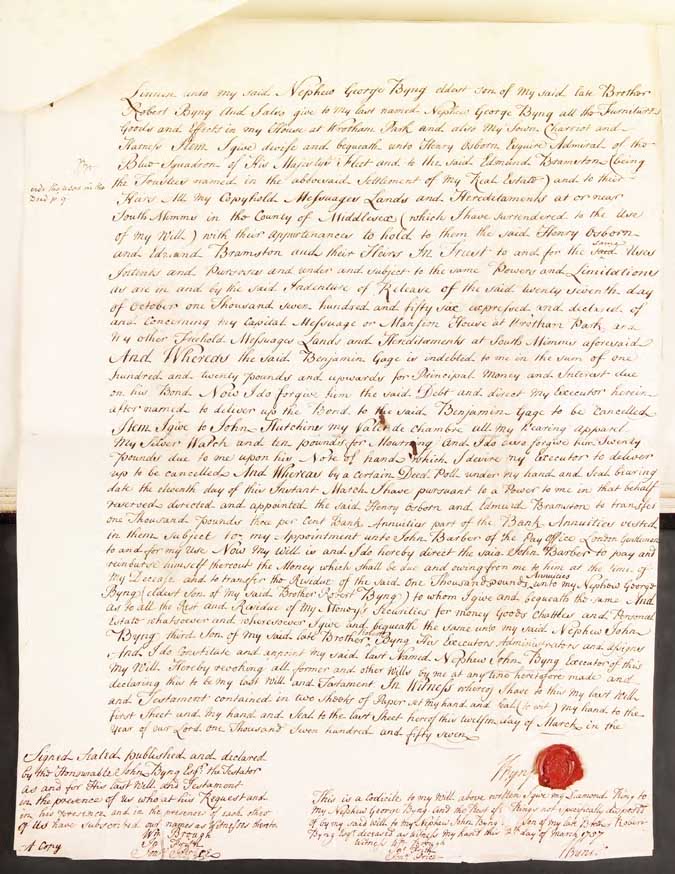 Linnen unto my said Nephew George Byng eldest son of my said late Brother
Robert Byng And I also give to my last named Nephew George Byng all the Furneture
Goods and Effects in my House at Wrotham Park and also my Town Charreot and
Harness Item I give devise and bequeath unto Henry Osborn Esquire Admiral of the
Blue Squadron of His Majesties Fleet and to the said Edmund Bramston (being
the Trustees named in the abovesaid Settlement of my Real Estate) and to their
Heirs All my Copyhold Messuages Lands and Hereditaments at or near
South Mimms in the County of Middlesex (which I have surrendered to the Use
of my Will) with their Appurtenances to hold to them the said Henry Osborn
and Edmund Bramston and their Heirs In Trust to and for the same said Uses
Intents and Purposes and under and subject to the same Powers and Limitations
as are in and by the said Indenture of Release of the said twenty seventh day
of October one Thousand seven hundred and fifty six expressed and declared of
and Concerning my Capital Messuage or Mansion House at Wrotham Park, and
my other Freehold Messuages Lands and Hereditaments at South Mimms aforesaid
And Whereas the said Benjamin Gage is indebted to me in the sum of one
hundred and twenty pounds and upwards for Principal Money and Interest due
on his Bond Now I do forgive him the said Debt and direct my Executor herein
after named to deliver up the Bond to the said Benjamin Gage to be Cancelled
Item I give to John Hutchins my Valet de chambre all my Wearing apparel
my Silver Watch and ten pounds for Mourning and I do also forgive him Twenty
Pounds due to me upon his Note of hand which I desire my Executor to deliver
up to be cancelled And Whereas by a certain Deed Poll under my hand and Seal bearing
date the eleventh day of this Instant March I have pursuant to a Power to me in that behalf
reserved directed and appointed the said Henry Osborn and Edmund Bramston to transfer
one Thousand Pounds three per Cent Bank Annuities part of the Bank Annuities vested
in them Subject to my Appointment unto John Barber of the Pay Office London Gentleman
to and for my Use Now my Will is and I do hereby direct the said John Barber to pay and
reimburse himself thereout the Money which shall be due and owing from me to him at the time of
my Decease and to transfer the Residue of the said One Thousand pounds Annuities unto my Nephew George
Byng (eldest Son of my said Brother Robert Byng) to whom I give and bequeath the same And
as to all the Rest and Residue of my Money's Securities for money Goods Chattles and Personal
Estate whatsoever and wheresoever I give and bequeath the same unto my said Nephew John
Byng third Son of my said late Brother Robert Byng His Executors Administrators and Assigns
And I do Constitute and appoint my said last Named Nephew John Byng Executor of this
my Will Hereby revoking all former and other Wills by me at any time heretofore made and
declaring this to be my last Will and Testament In Witness whereof I have to this my last Will
and Testament contained in two Sheets of Paper set my hand and seal (to wit) my hand to the
first Sheet and my hand and Seal to the last Sheet hereof this twelfth day of March in the
Year of our Lord One Thousand Seven hundred and fifty Seven
Signed Sealed published and declared
by the Honourable John Byng Esqr. the Testator
as and for His last Will and Testament
in the presence of us who at his Request and
in his presence and in the presence of each other
of Us have Subscribed our names as Witnesses thereto
Wm Brough
A Copy
JByng
This is a Codicile to my Will above written I give my Diamond Ring to
my Nephew George Byng and the Rest of Things not specifically disposed
of by my said Will to my Nephew John Byng Son of my late Brother Robert
Byng Esqr. deceased as witness my hand this 12th day of March 1757
Witness Wm Brough
JByng